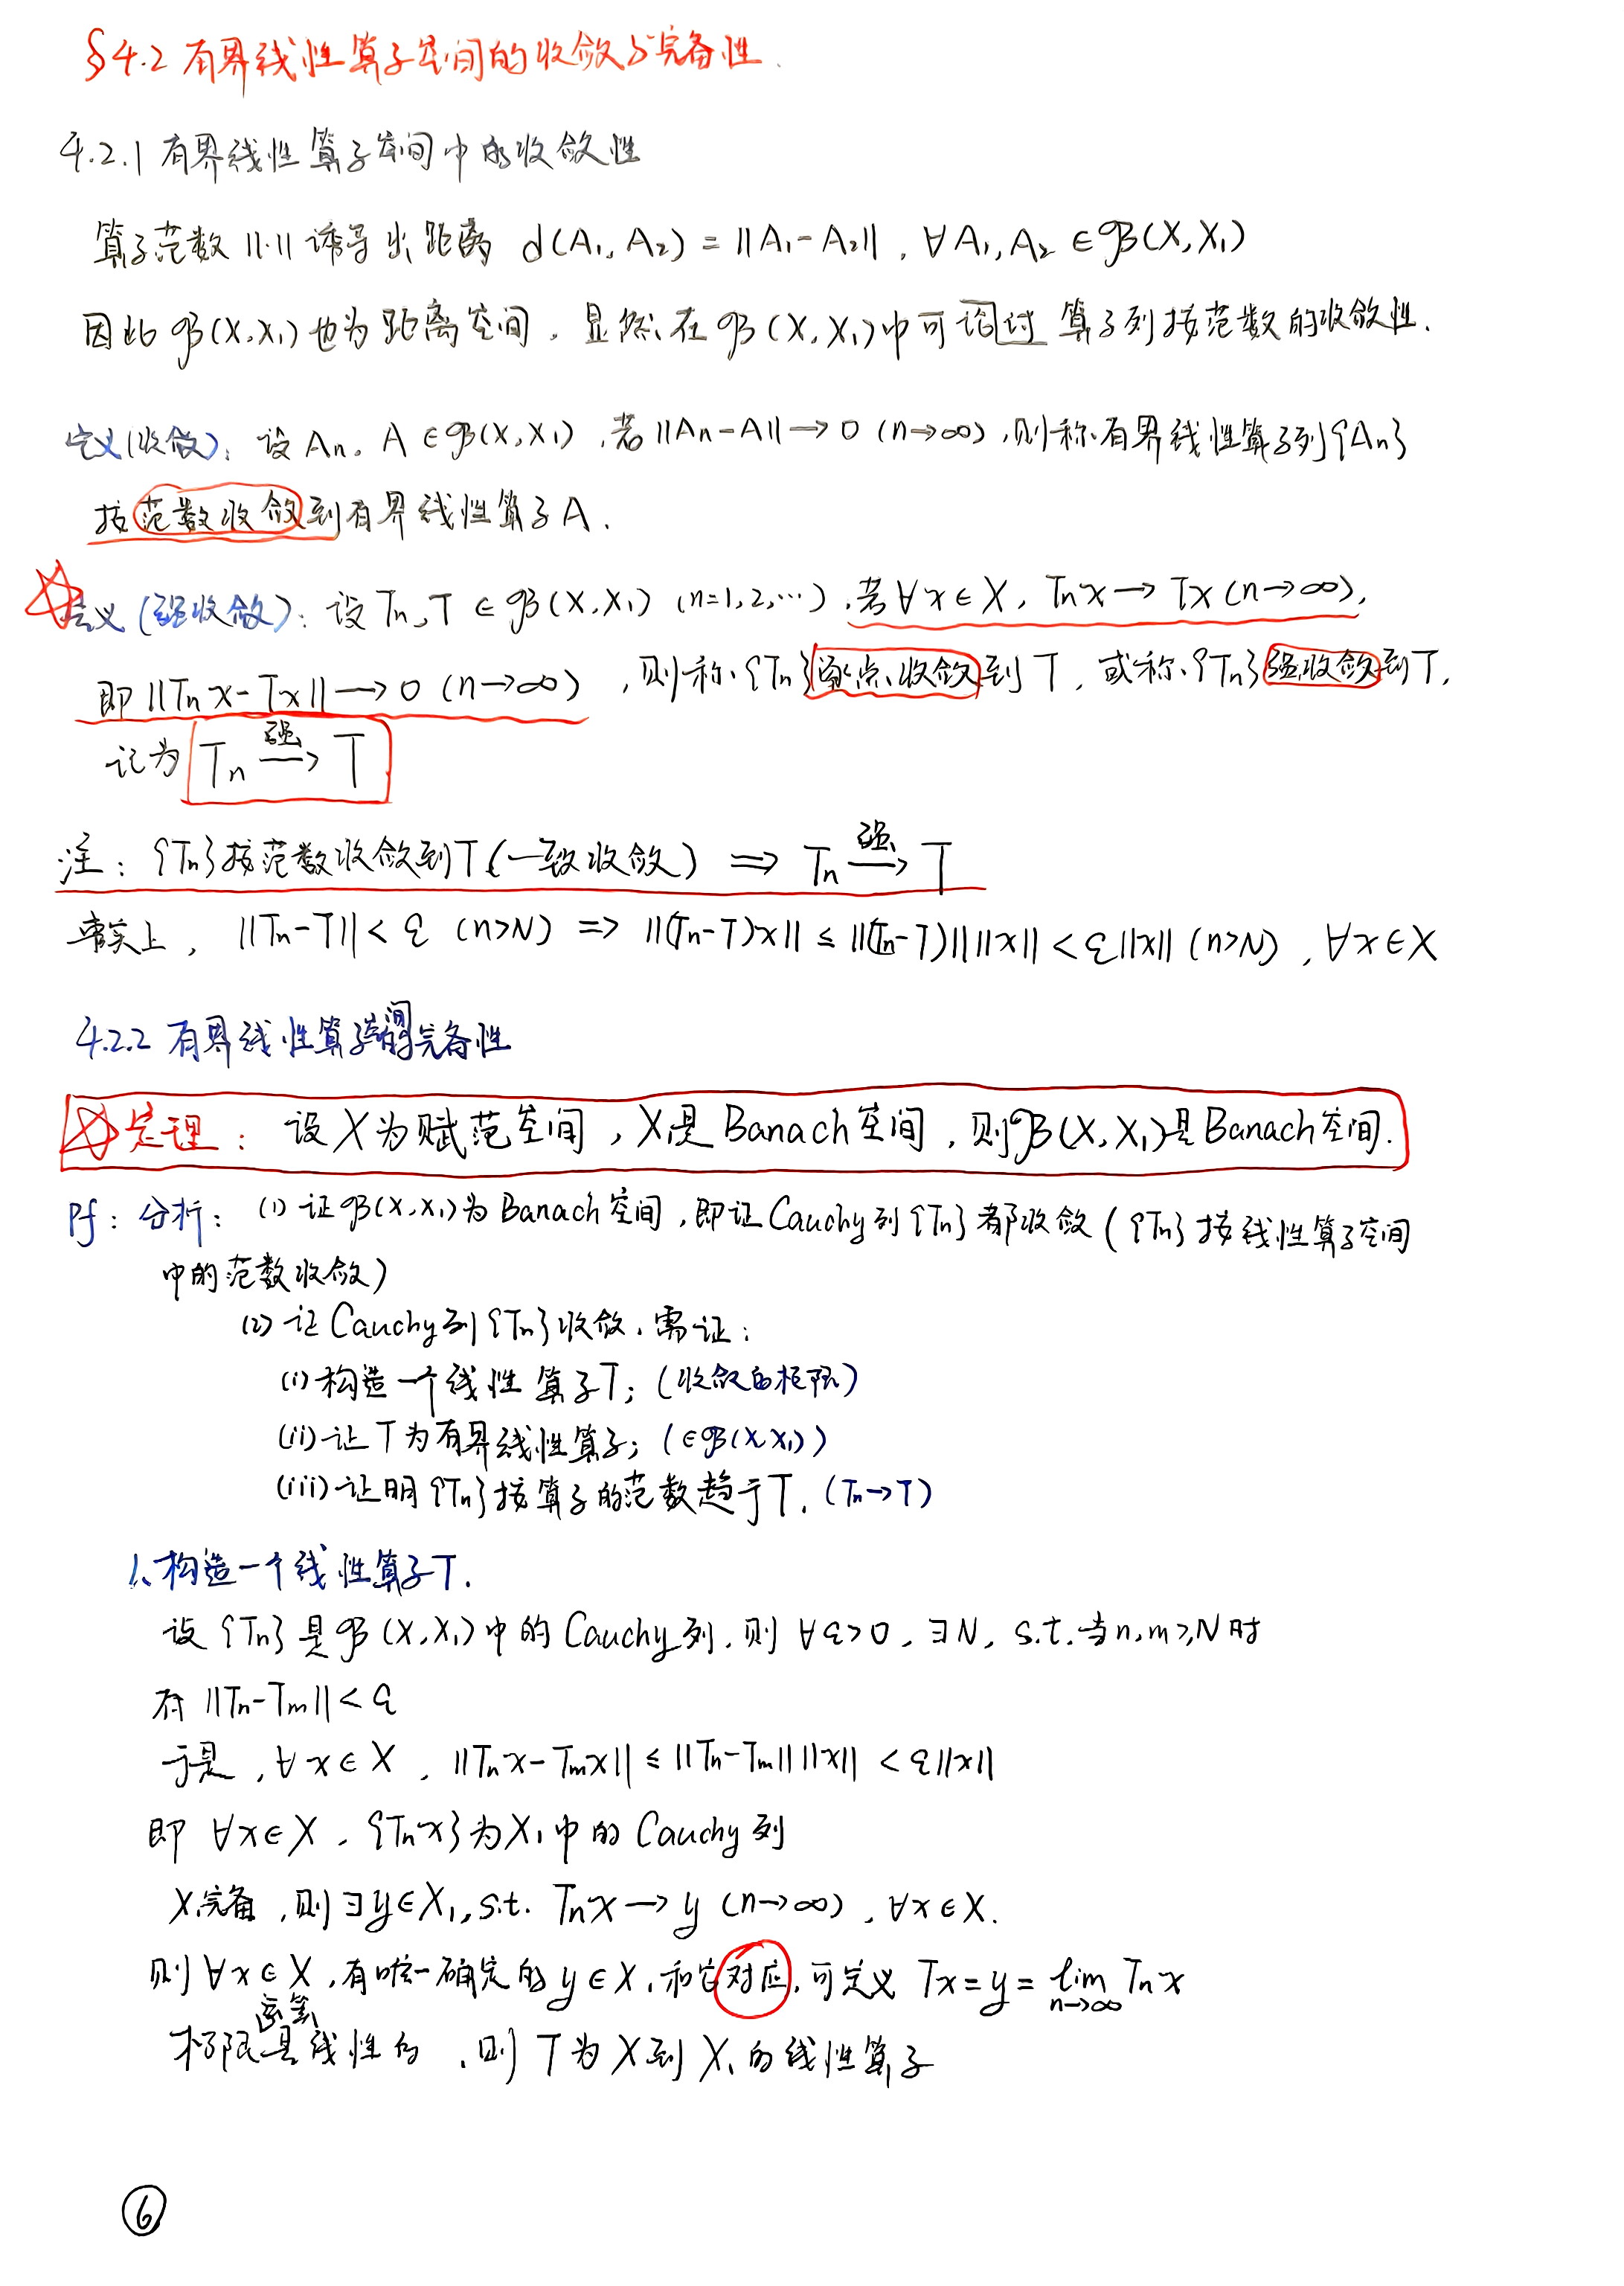 §4.2 有界线性算子空间的收敛与完备性.
4.2.1 有界线性算子空间中的收敛性
算子范数 ||·|| 诱导出距离 d(A₁, A₂) = ||A₁-A₂||, ∀A₁, A₂ ∈ 𝓑(X, X₁)
因此 𝓑(X, X₁) 也为距离空间, 显然在 𝓑(X, X₁) 中可讨论过 算子列按范数的收敛性.
定义(收敛): 设 Aₙ, A ∈ 𝓑(X, X₁), 若 ||Aₙ-A|| → 0 (n→∞), 则称有界线性算子列{Aₙ}
按范数收敛到有界线性算子A.
定义(强收敛): 设 Tₙ, T ∈ 𝓑(X, X₁) (n=1,2,…), 若∀x∈X, Tₙx → Tx (n→∞),
即 ||Tₙx-Tx|| → 0 (n→∞), 则称{Tₙ}逐点收敛到T, 或称{Tₙ}强收敛到T,
记为 Tₙ —强→ T
注: {Tₙ}按范数收敛到T(一致收敛) ⇒ Tₙ —强→ T
事实上, ||Tₙ-T|| < ε (n>N) ⇒ ||(Tₙ-T)x|| ≤ ||(Tₙ-T)|| ||x|| < ε||x|| (n>N), ∀x∈X
4.2.2 有界线性算子空间的完备性
定理: 设X为赋范空间, X₁是Banach空间, 则𝓑(X, X₁)是Banach空间.
Pf: 分析: (1) 证𝓑(X, X₁)为Banach空间, 即证Cauchy列{Tₙ}都收敛 ({Tₙ}按线性算子空间
中的范数收敛)
(2) 证Cauchy列{Tₙ}收敛, 需证:
(i) 构造一个线性算子T; (收敛的极限)
(ii) 证T为有界线性算子; (∈𝓑(X, X₁))
(iii) 证明{Tₙ}按算子的范数趋于T. (Tₙ→T)
1、构造一个线性算子T.
设{Tₙ}是𝓑(X, X₁)中的Cauchy列, 则∀ε>0, ∃N, s.t. 当n,m≥N时
有 ||Tₙ-Tₘ|| < ε
于是, ∀x∈X, ||Tₙx-Tₘx|| ≤ ||Tₙ-Tₘ|| ||x|| < ε||x||
即 ∀x∈X, {Tₙx}为X₁中的Cauchy列
X₁完备, 则∃y∈X₁, s.t. Tₙx → y (n→∞), ∀x∈X.
则∀x∈X, 有唯一确定的y∈X₁和它对应, 可定义 Tx=y=lim_{n→∞} Tₙx
极限运算是线性的, 则 T为X到X₁的线性算子
⑥